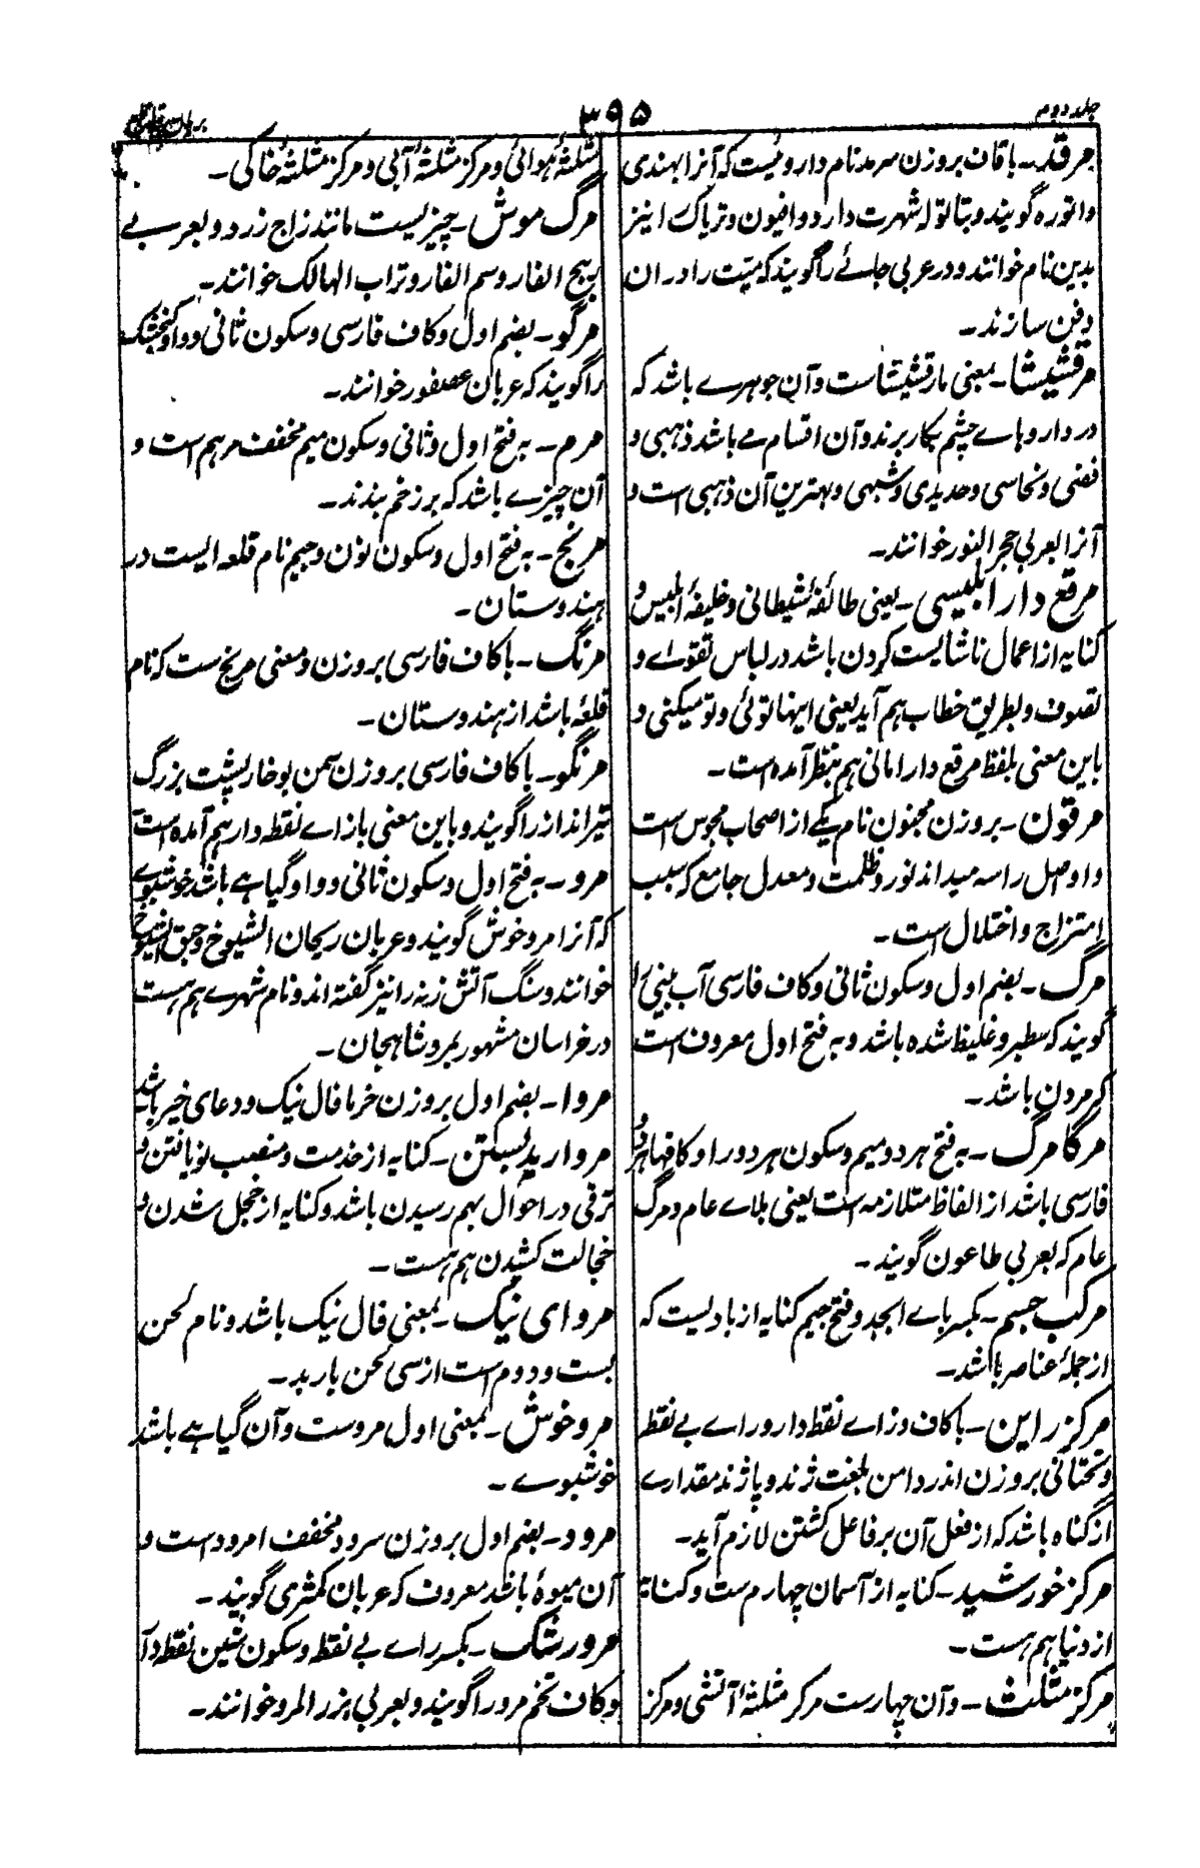 جلد دوم
۳۹۵
برهان قاطع
مرقد۔ با قاف بروزن سرمد نام داروئیست که آنرا بهندی
داتوره گویند و بتاتوله شهرت دارد و افیون و تریاک را نیز
بدین نام خوانند و در عربی جائے را گویند که میّت را در ان
دفن سازند۔
مرقشیشا۔ بمعنی مارقشیشاست و آن جوهرے باشد که
در داروهاے چشم بکار برند و آن اقسام مے باشد ذهبی و
فضی و نحاسی و حدیدی و شبهی و بهترین آن ذهبی است و
آنرا بعربی حجر النور خوانند۔
مرقع دار ابلیسی۔ یعنی طائفهٔ شیطانی و خلیفهٔ ابلیس و
کنایه از اعمال ناشایست کردن باشد در لباس تقوےٰ و
تصوف و بطریق خطاب هم آید یعنی اینها توئی و تو میکنی و
باین معنی بلفظ مرقع دارامانی هم بنظر آمده است۔
مرقون۔ بروزن مجنون نام یکے از اصحاب مجوس است
و او اصل را سه میداند نور و ظلمت و معدل جامع که سبب
امتزاج و اختلال است۔
مرگ۔ بضم اول و سکون ثانی و کاف فارسی آب بینی را
گویند که سطبر و غلیظ شده باشد و به فتح اول معروف است
که مردن باشد۔
مرگامرگ۔ به فتح هر دو میم و سکون هر دو را و کافها هر دو
فارسی باشد از الفاظ متلازمه است یعنی بلاے عام و مرگ
عام که بعربی طاعون گویند۔
مرکب جسم۔ بکسر باے ابجد و فتح جیم کنایه از بادیست که
از جملهٔ عناصر باشد۔
مرکزراین۔ با کاف و زاے نقطه دار و راے بے نقطه
و تحتانی بروزن اندر دامن بلغت ژند و پاژند مقدارے
از گناه باشد که از فعل آن بر فاعل کشتن لازم آید۔
مرکز خورشید۔ کنایه از آسمان چهارم ست و کنایة
از دنیا هم هست۔
مرکز مثلث۔ و آن چهارست مرکز مثلثهٔ آتشی و مرکز
مثلثهٔ هوائی و مرکز مثلثهٔ آبی و مرکز مثلثهٔ خاکی۔
مرگ موش۔ چیزیست مانند زاج زرد و بعربے
ریبج الفار و سم الفار و تراب الهالک خوانند۔
مرگو۔ بضم اول و کاف فارسی و سکون ثانی و واو گنجشک
را گویند که عربان عصفور خوانند۔
مرم۔ به فتح اول و ثانی و سکون میم مخفف مرهم است و
آن چیزے باشد که بر زخم بندند۔
مرنج۔ به فتح اول و سکون نون و جیم نام قلعه ایست در
هندوستان۔
مرنگ۔ با کاف فارسی بروزن و معنی مرنج ست که نام
قلعهٔ باشد از هندوستان۔
مرنگو۔ با کاف فارسی بروزن سمن بو خارپشت بزرگ
تیرانداز را گویند و باین معنی بازاے نقطه دار هم آمده است
مرو۔ به فتح اول و سکون ثانی و واو گیاہے باشد خوشبوے
که آنرا مرو خوش گویند و عربان ریحان الشیوخ و حبق الشیوخ
خوانند و سنگ آتش زنه را نیز گفته اند و نام شهرے هم هست
در خراسان مشهور بمرو شاهجان۔
مروا۔ بضم اول بروزن خرما فال نیک و دعای خیر باشد
مروارید بستن۔ کنایه از خدمت و منصب نو یافتن و
ترقی در احوال بهم رسیدن باشد و کنایه از خجل شدن و
خجالت کشیدن هم هست۔
مروای نیک۔ بمعنی فال نیک باشد و نام لحن
بست و دوم است از سی لحن باربد۔
مرو خوش۔ بمعنی اول مروست و آن گیاہے باشد
خوشبوے۔
مرود۔ بضم اول بروزن سرود مخفف امرود است و
آن میوهٔ باشد معروف که عربان کمثری گویند۔
مرورشک۔ بکسر راے بے نقطه و سکون شین نقطه دار
و کاف تخم مرو را گویند و بعربی بزر المرو خوانند۔